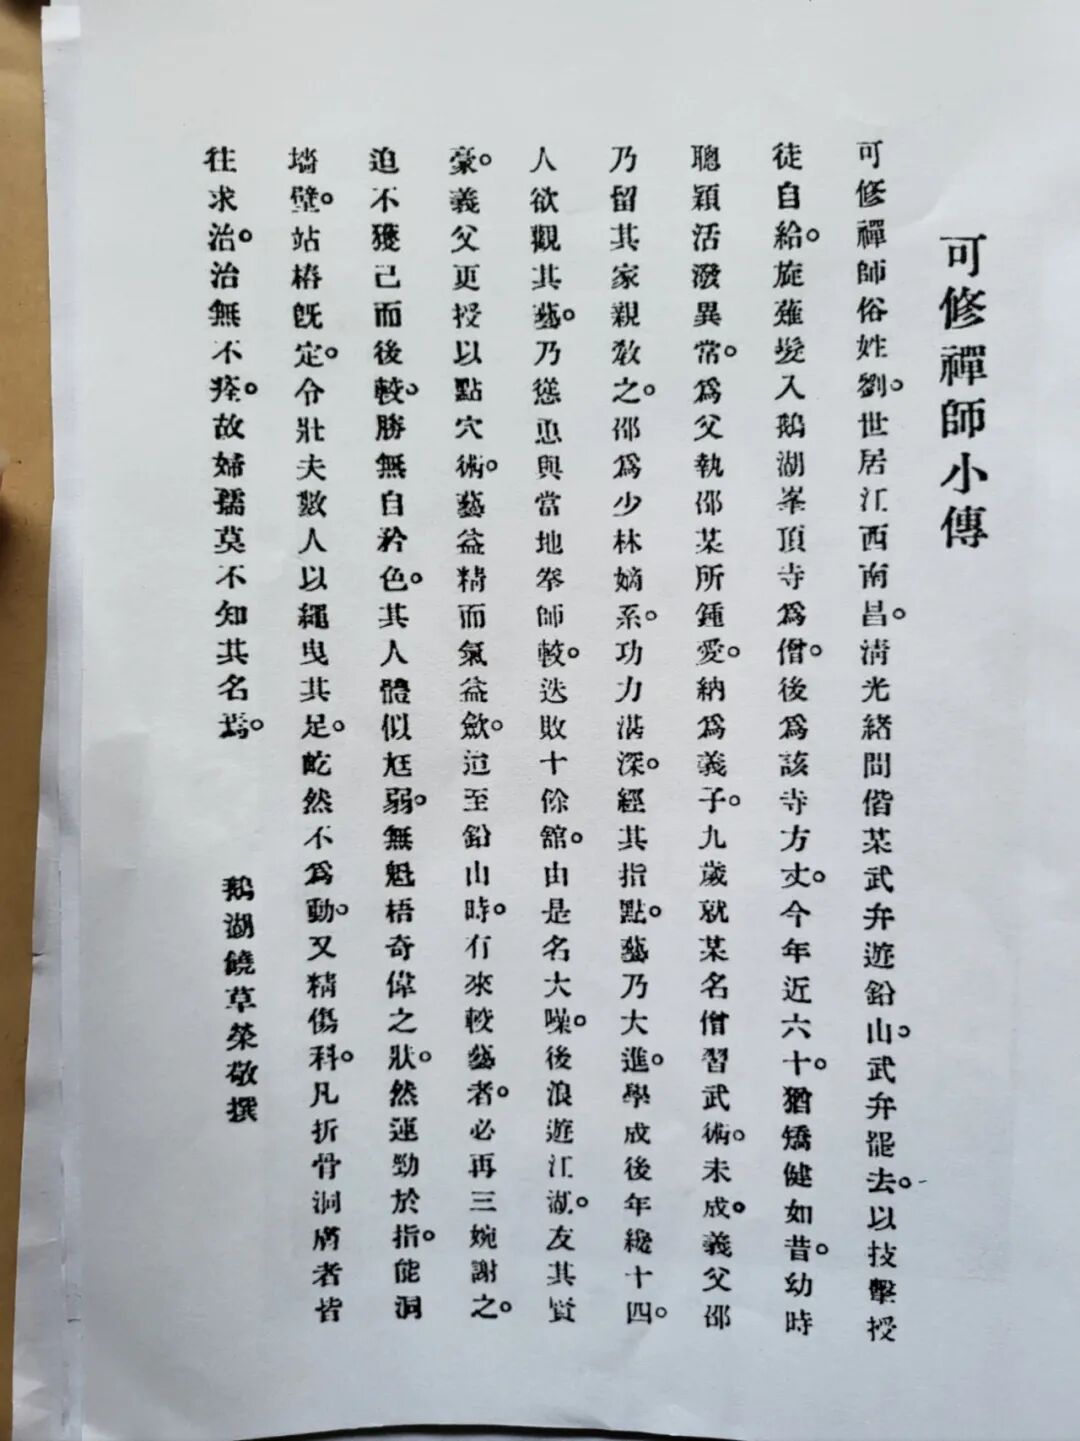 可修禪師小傳
可修禪師俗姓劉。世居江西南昌。淸光緒間偕某武弁遊鉛山。武弁罷去。以技擊授
徒自給。旋薙髮入鵝湖峯頂寺爲僧。後爲該寺方丈。今年近六十。猶矯健如昔。幼時
聰穎活潑異常。爲父執邵某所鍾愛。納爲義子。九歲就某名僧習武術。未成。義父邵
乃留其家親敎之。邵爲少林嫡系。功力湛深。經其指點。藝乃大進。學成後年纔十四。
人欲觀其藝。乃慫恿與當地拳師較。迭敗十餘舘。由是名大噪。後浪遊江湖。友其賢
豪。義父更授以點穴術。藝益精而氣益斂。迨至鉛山時。有來較藝者。必再三婉謝之。
迫不獲已而後較。勝無自矜色。其人體似尫弱。無魁梧奇偉之狀。然運勁於指。能洞
墻壁。站樁旣定。令壯夫數人以繩曳其足。屹然不爲動。又精傷科。凡折骨洞膚者皆
往求治。治無不痊。故婦孺莫不知其名焉。
鵝湖饒草榮敬撰